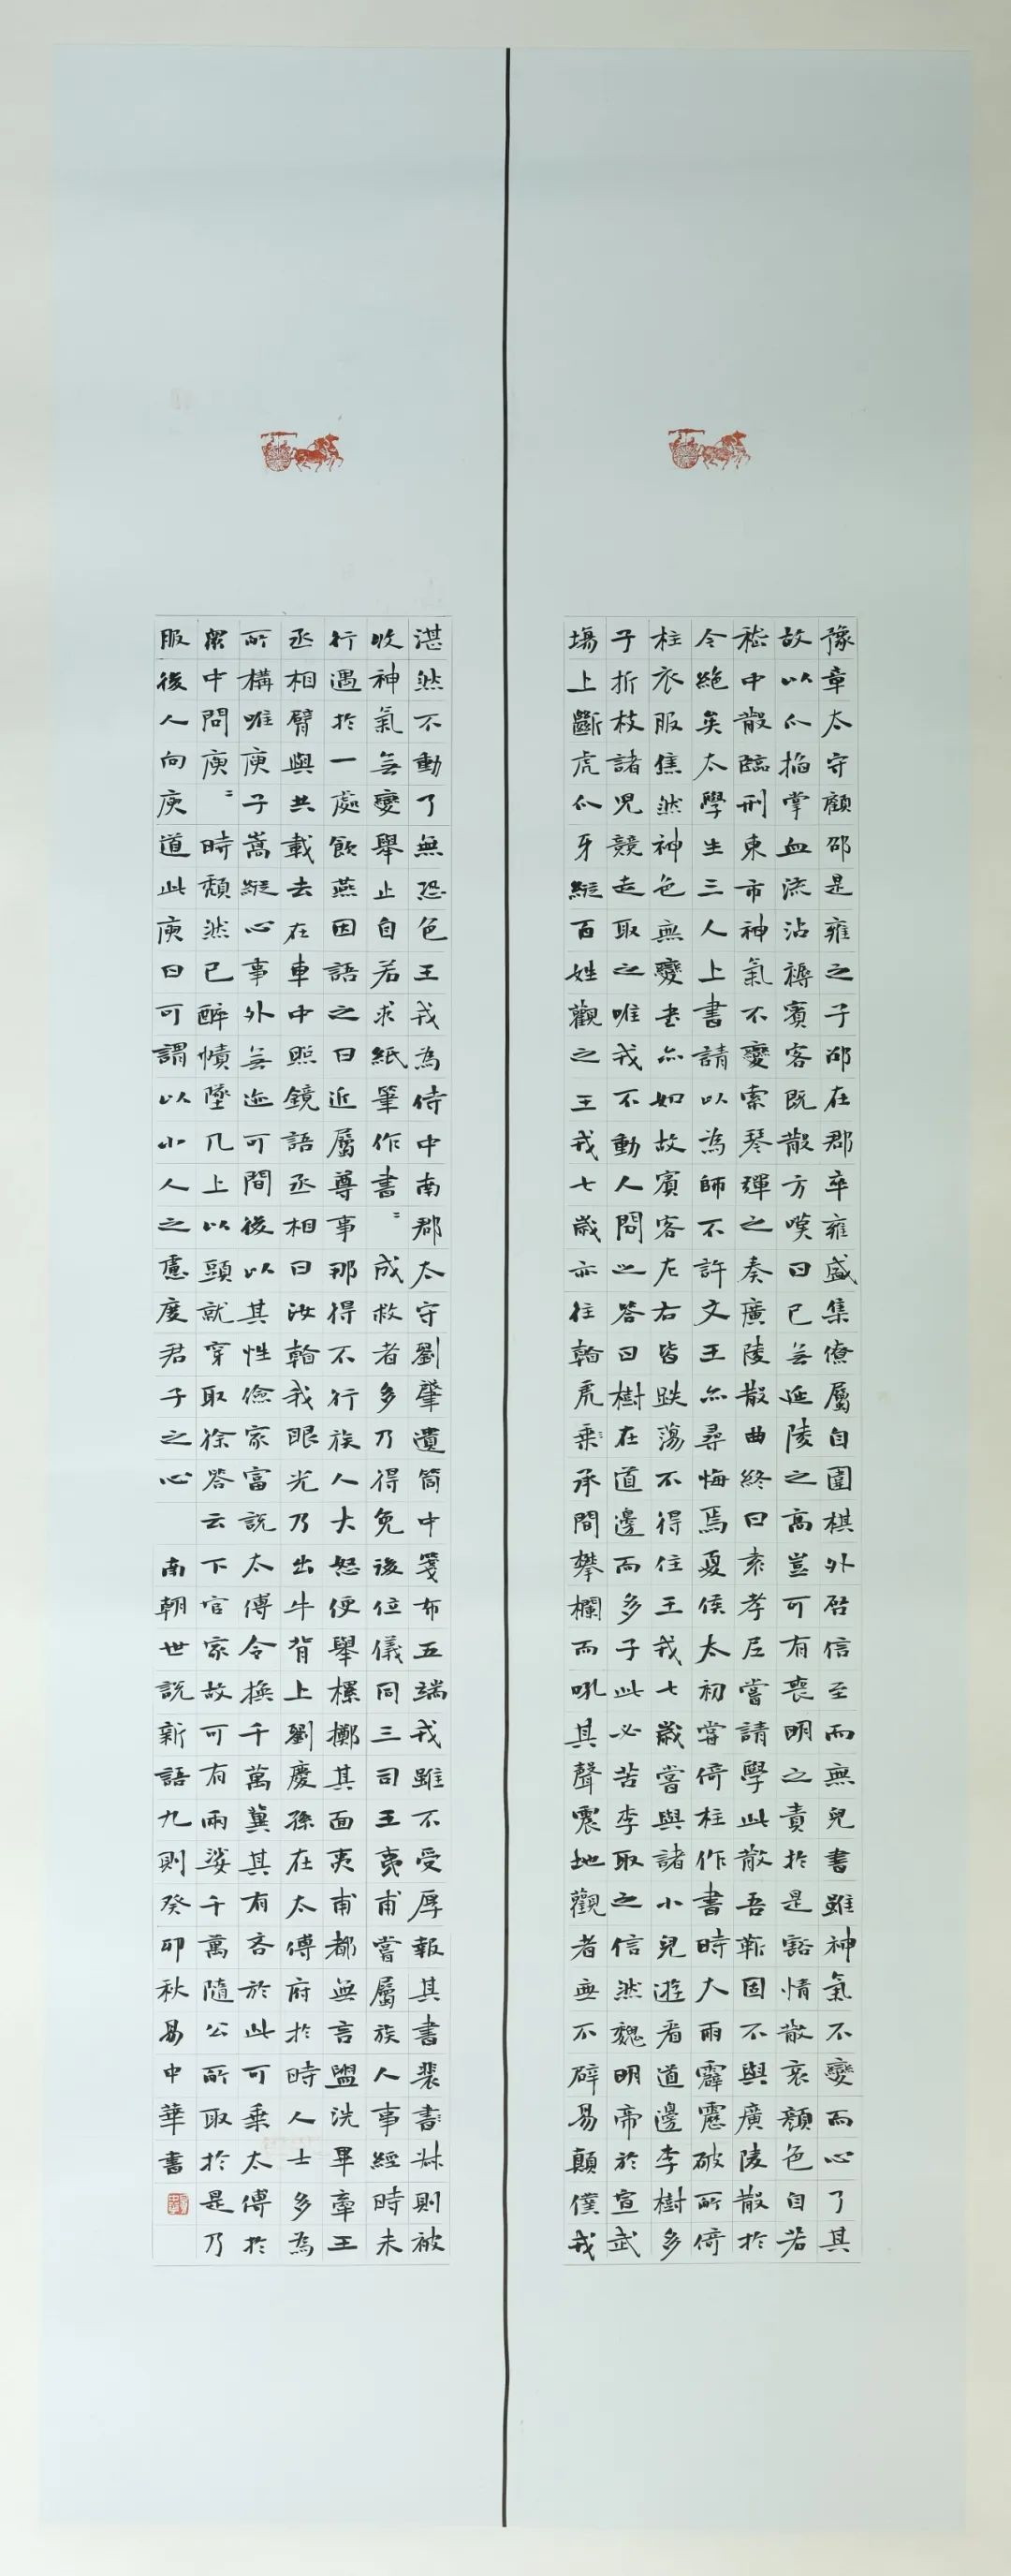 豫章太守顧邵是雍之子邵在郡卒雍盛集僚屬自圍棋外啓信至而無兒書雖神氣不變而心了其
故以爪掐掌血流沾褥賓客既散方嘆曰已無延陵之高豈可有喪明之責於是豁情散哀顏色自若
嵇中散臨刑東市神氣不變索琴彈之奏廣陵散曲終曰袁孝尼嘗請學此散吾靳固不與廣陵散於
今絕矣太學生三人上書請以為師不許文王亦尋悔焉夏侯太初嘗倚柱作書時大雨霹靂破所倚
柱衣服焦然神色無變書亦如故賓客左右皆跌蕩不得住王戎七歲嘗與諸小兒遊看道邊李樹多
子折枝諸兒競走取之唯戎不動人問之答曰樹在道邊而多子此必苦李取之信然魏明帝於宣武
場上斷虎爪牙縱百姓觀之王戎七歲亦往看虎乘承間攀欄而吼其聲震地觀者無不辟易顛僕戎
湛然不動了無恐色王戎為侍中南郡太守劉肇遺筒中箋布五端戎雖不受厚報其書裴書叔則被
收神氣無變舉止自若求紙筆作書〻成救者多乃得免後位儀同三司王夷甫嘗屬族人事經時未
行遇於一處飲燕因語之曰近屬尊事那得不行族人大怒便舉樏擲其面夷甫都無言盥洗畢牽王
丞相臂與共載去在車中照鏡語丞相曰汝看我眼光乃出牛背上劉慶孫在太傅府於時人士多為
所構唯庾子嵩縱心事外無迹可間後以其性儉家富說太傅令換千萬冀其有吝於此可乘太傅於
眾中問庾〻時頹然已醉幘墮几上以頭就穿取徐答云下官家故可有兩娑千萬隨公所取於是乃
服後人向庾道此庾曰可謂以小人之慮度君子之心 南朝世說新語九則癸卯秋易中華書